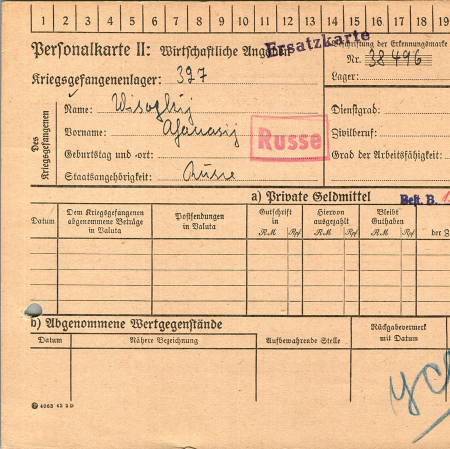 1 2 3 4 5 6 7 8 9 10 11 12 13 14 15 16 17 18 19
Personalkarte II: Wirtschaftliche Angaben
Ersatzkarte
Beschriftung der Erkennungsmarke
Nr. 38496
Kriegsgefangenenlager: 327
Lager:
Des Kriegsgefangenen
Name:
Vorname: Afanasij
Geburtstag und -ort:
Staatsangehörigkeit: Russe
Russe
Dienstgrad:
Zivilberuf:
Grad der Arbeitsfähigkeit:
a) Private Geldmittel
Best. B. 1
Datum
Dem Kriegsgefangenen abgenommene Beträge in Valuta
Postsendungen in Valuta
Gutschrift in
RM Rpf
Hiervon ausgezahlt
RM Rpf
Bleibt Guthaben
RM Rpf
der
b) Abgenommene Wertgegenstände
Datum
Nähere Bezeichnung
Aufbewahrende Stelle
Rückgabevermerk mit Datum
4063 42 2 D